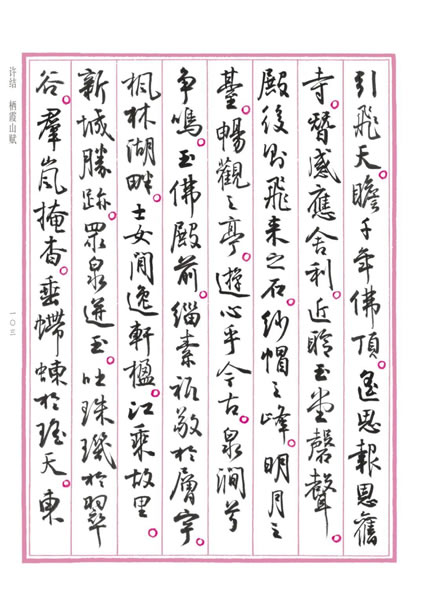 引飛天。瞻千年佛頂。遙思報恩舊
寺。感應舍利。近聆玉堂磬聲。
殿後則飛来之石。紗帽之峰。明月之
臺。暢觀之亭。遊心乎今古。泉澗兮
争鳴。玉佛殿前。緇素祗敬於層宇。
楓林湖畔。士女閒逸軒楹。江乘故里。
新城勝跡。眾泉迸玉。吐珠璣於翠
谷。羣嵐掩杳。垂螮蝀於瑤天。東
许结 栖霞山赋
一〇三